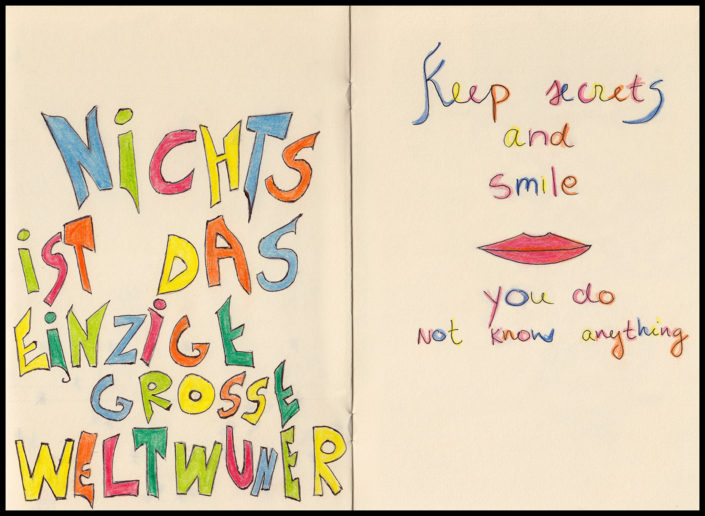 NiCHTS
iST DAS
EiNZiGE
GROSSE
WELTWUNER
Keep secrets
and
smile
you do
Not know anything